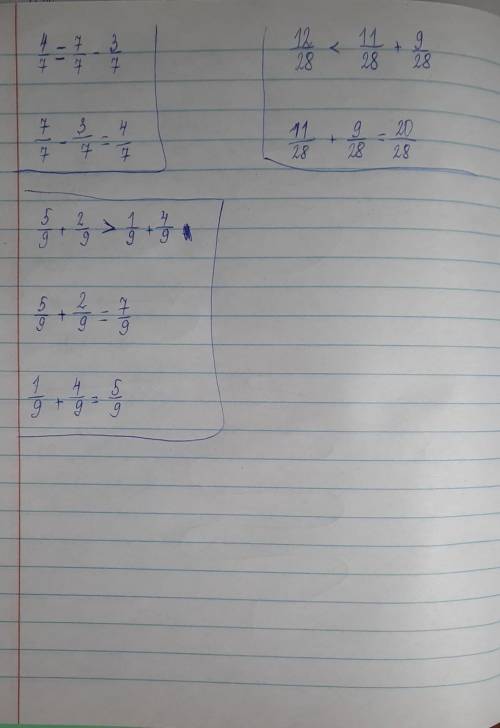 4/7 = 7/7 - 3/7
7/7 - 3/7 = 4/7
12/28 < 11/28 + 9/28
11/28 + 9/28 = 20/28
5/9 + 2/9 > 1/9 + 4/9
5/9 + 2/9 = 7/9
1/9 + 4/9 = 5/9